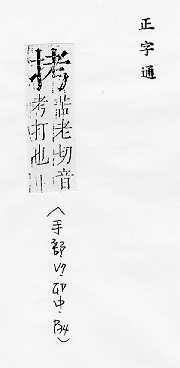 正字通
拷
苦老切音
考打也
手部